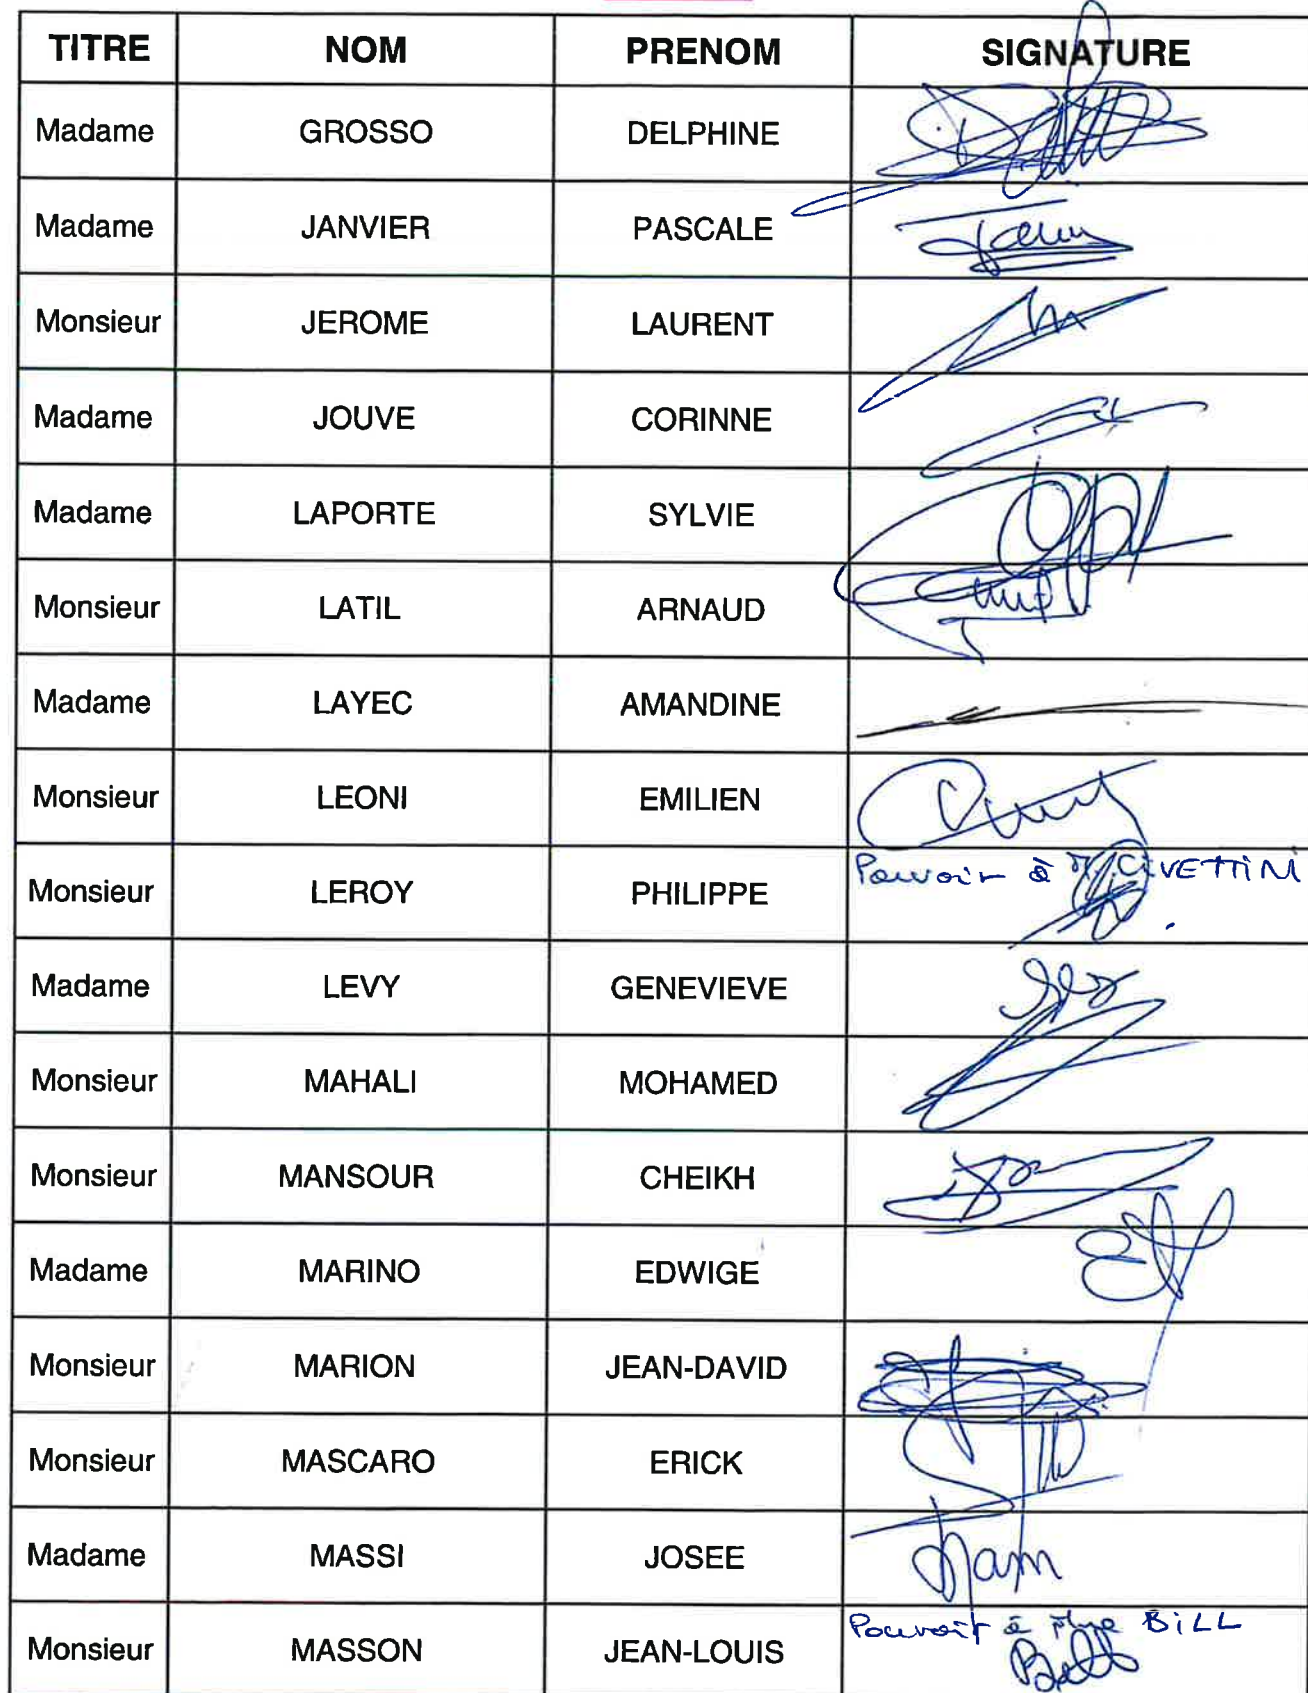 TITRE NOM PRENOM SIGNATURE
Madame GROSSO DELPHINE
Madame JANVIER PASCALE
Monsieur JEROME LAURENT
Madame JOUVE CORINNE
Madame LAPORTE SYLVIE
Monsieur LATIL ARNAUD
Madame LAYEC AMANDINE
Monsieur LEONI EMILIEN
Monsieur LEROY PHILIPPE Pouvoir à CIVETTINI
Madame LEVY GENEVIEVE
Monsieur MAHALI MOHAMED
Monsieur MANSOUR CHEIKH
Madame MARINO EDWIGE
Monsieur MARION JEAN-DAVID
Monsieur MASCARO ERICK
Madame MASSI JOSEE
Monsieur MASSON JEAN-LOUIS Pouvoir à Mme BILL